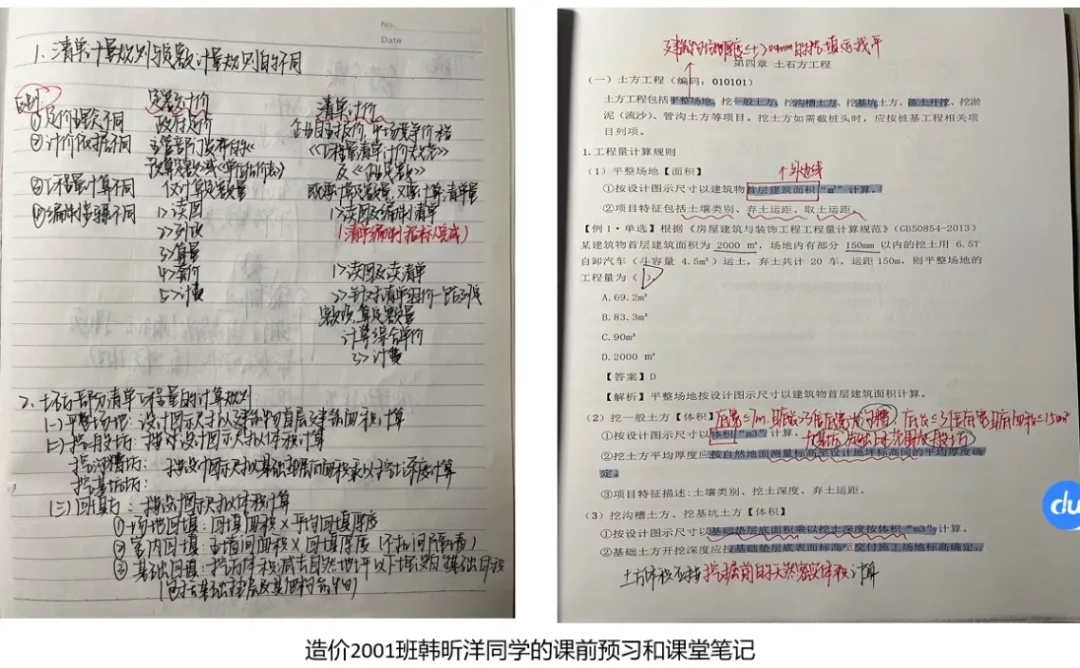 No.
Date
1、清单计算规则与定额计算规则的不同
区别
定额计价
清单计价
①定价阶段不同
政府定价
②计价依据不同
③工程量计算不同
仅计算定额量
④编制步骤不同
1>读图
1>读图及编制清单
(清单编制 招标人完成)
2>列项
3>算量
4>套价
1>读图及读清单
5>计费
计算综合单价
3>计费
2、土石方部分清单工程量的计算规则
(一)平整场地:设计图示尺寸以建筑物首层建筑面积计算
(二)挖一般土方:按设计图示尺寸以体积计算
挖沟槽土方:按设计图示尺寸以基础垫层底面积乘以挖土深度计算
挖基坑土方:
(三)回填方:按设计图示尺寸以体积计算
①场地回填:回填面积×平均回填厚度
②室内回填:主墙间面积×回填厚度(不扣间隔墙)
③基础回填:挖方体积减去自然地坪以下埋设的基础体积
(包括基础垫层及其他构筑物)
建筑物场地厚度≤±300mm的挖、填、运、找平
第四章 土石方工程
(一)土方工程(编码:010101)
土方工程包括平整场地、挖一般土方、挖沟槽土方、挖基坑土方、冻土开挖、挖淤
泥(流沙)、管沟土方等项目。挖土方如需截桩头时,应按桩基工程相关项
目列项。
1.工程量计算规则
(1)平整场地【面积】
外边线
①按设计图示尺寸以建筑物首层建筑面积"㎡"计算。
②项目特征包括土壤类别、弃土运距、取土运距。
【例1·单选】根据《房屋建筑与装饰工程工程量计算规范》(GB50854-2013)
某建筑物首层建筑面积为 2000 ㎡,场地内有部分 150mm 以内的挖土用 6.5T
自卸汽车(斗容量 4.5m³)运土,弃土共计 20 车,运距 150m,则平整场地的
工程量为(D)
A.69.2m³
B.83.3m³
C.90m³
D.2000 ㎡
【答案】D
【解析】平整场地按设计图示尺寸以建筑物首层建筑面积计算。
(2)挖一般土方【体积】
底宽≤7m,底长>3倍底宽为沟槽,底长≤3倍底宽,底面积≤150m²
①按设计图示尺寸以体积"m3"计算。
为基坑,超出上述范围为一般土方
②挖土方平均厚度应按自然地面测量标高至设计地坪标高间的平均厚度确
定。
③项目特征描述:土壤类别、挖土深度、弃土运距。
(3)挖沟槽土方、挖基坑土方【体积】
①按设计图示尺寸以基础垫层底面积乘以挖土深度按体积"m3"计算。
②基础土方开挖深度应按基础垫层底表面标高至交付施工场地标高确定,
土方体积应按挖掘前的天然密实体积计算
du
造价2001班韩昕洋同学的课前预习和课堂笔记